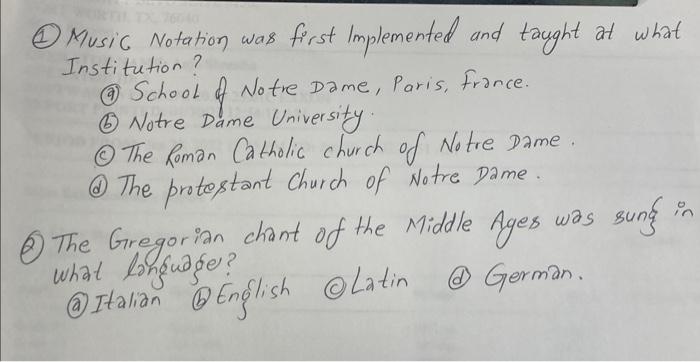 ① Music Notation was first Implemented and taught at what
Institution?
ⓐ School of Notre Dame, Paris, France.
ⓑ Notre Dame University.
ⓒ The Roman Catholic church of Notre Dame.
ⓓ The protestant Church of Notre Dame.
② The Gregorian chant of the Middle Ages was sung in
what language?
ⓐ Italian ⓑ English ⓒ Latin ⓓ German.